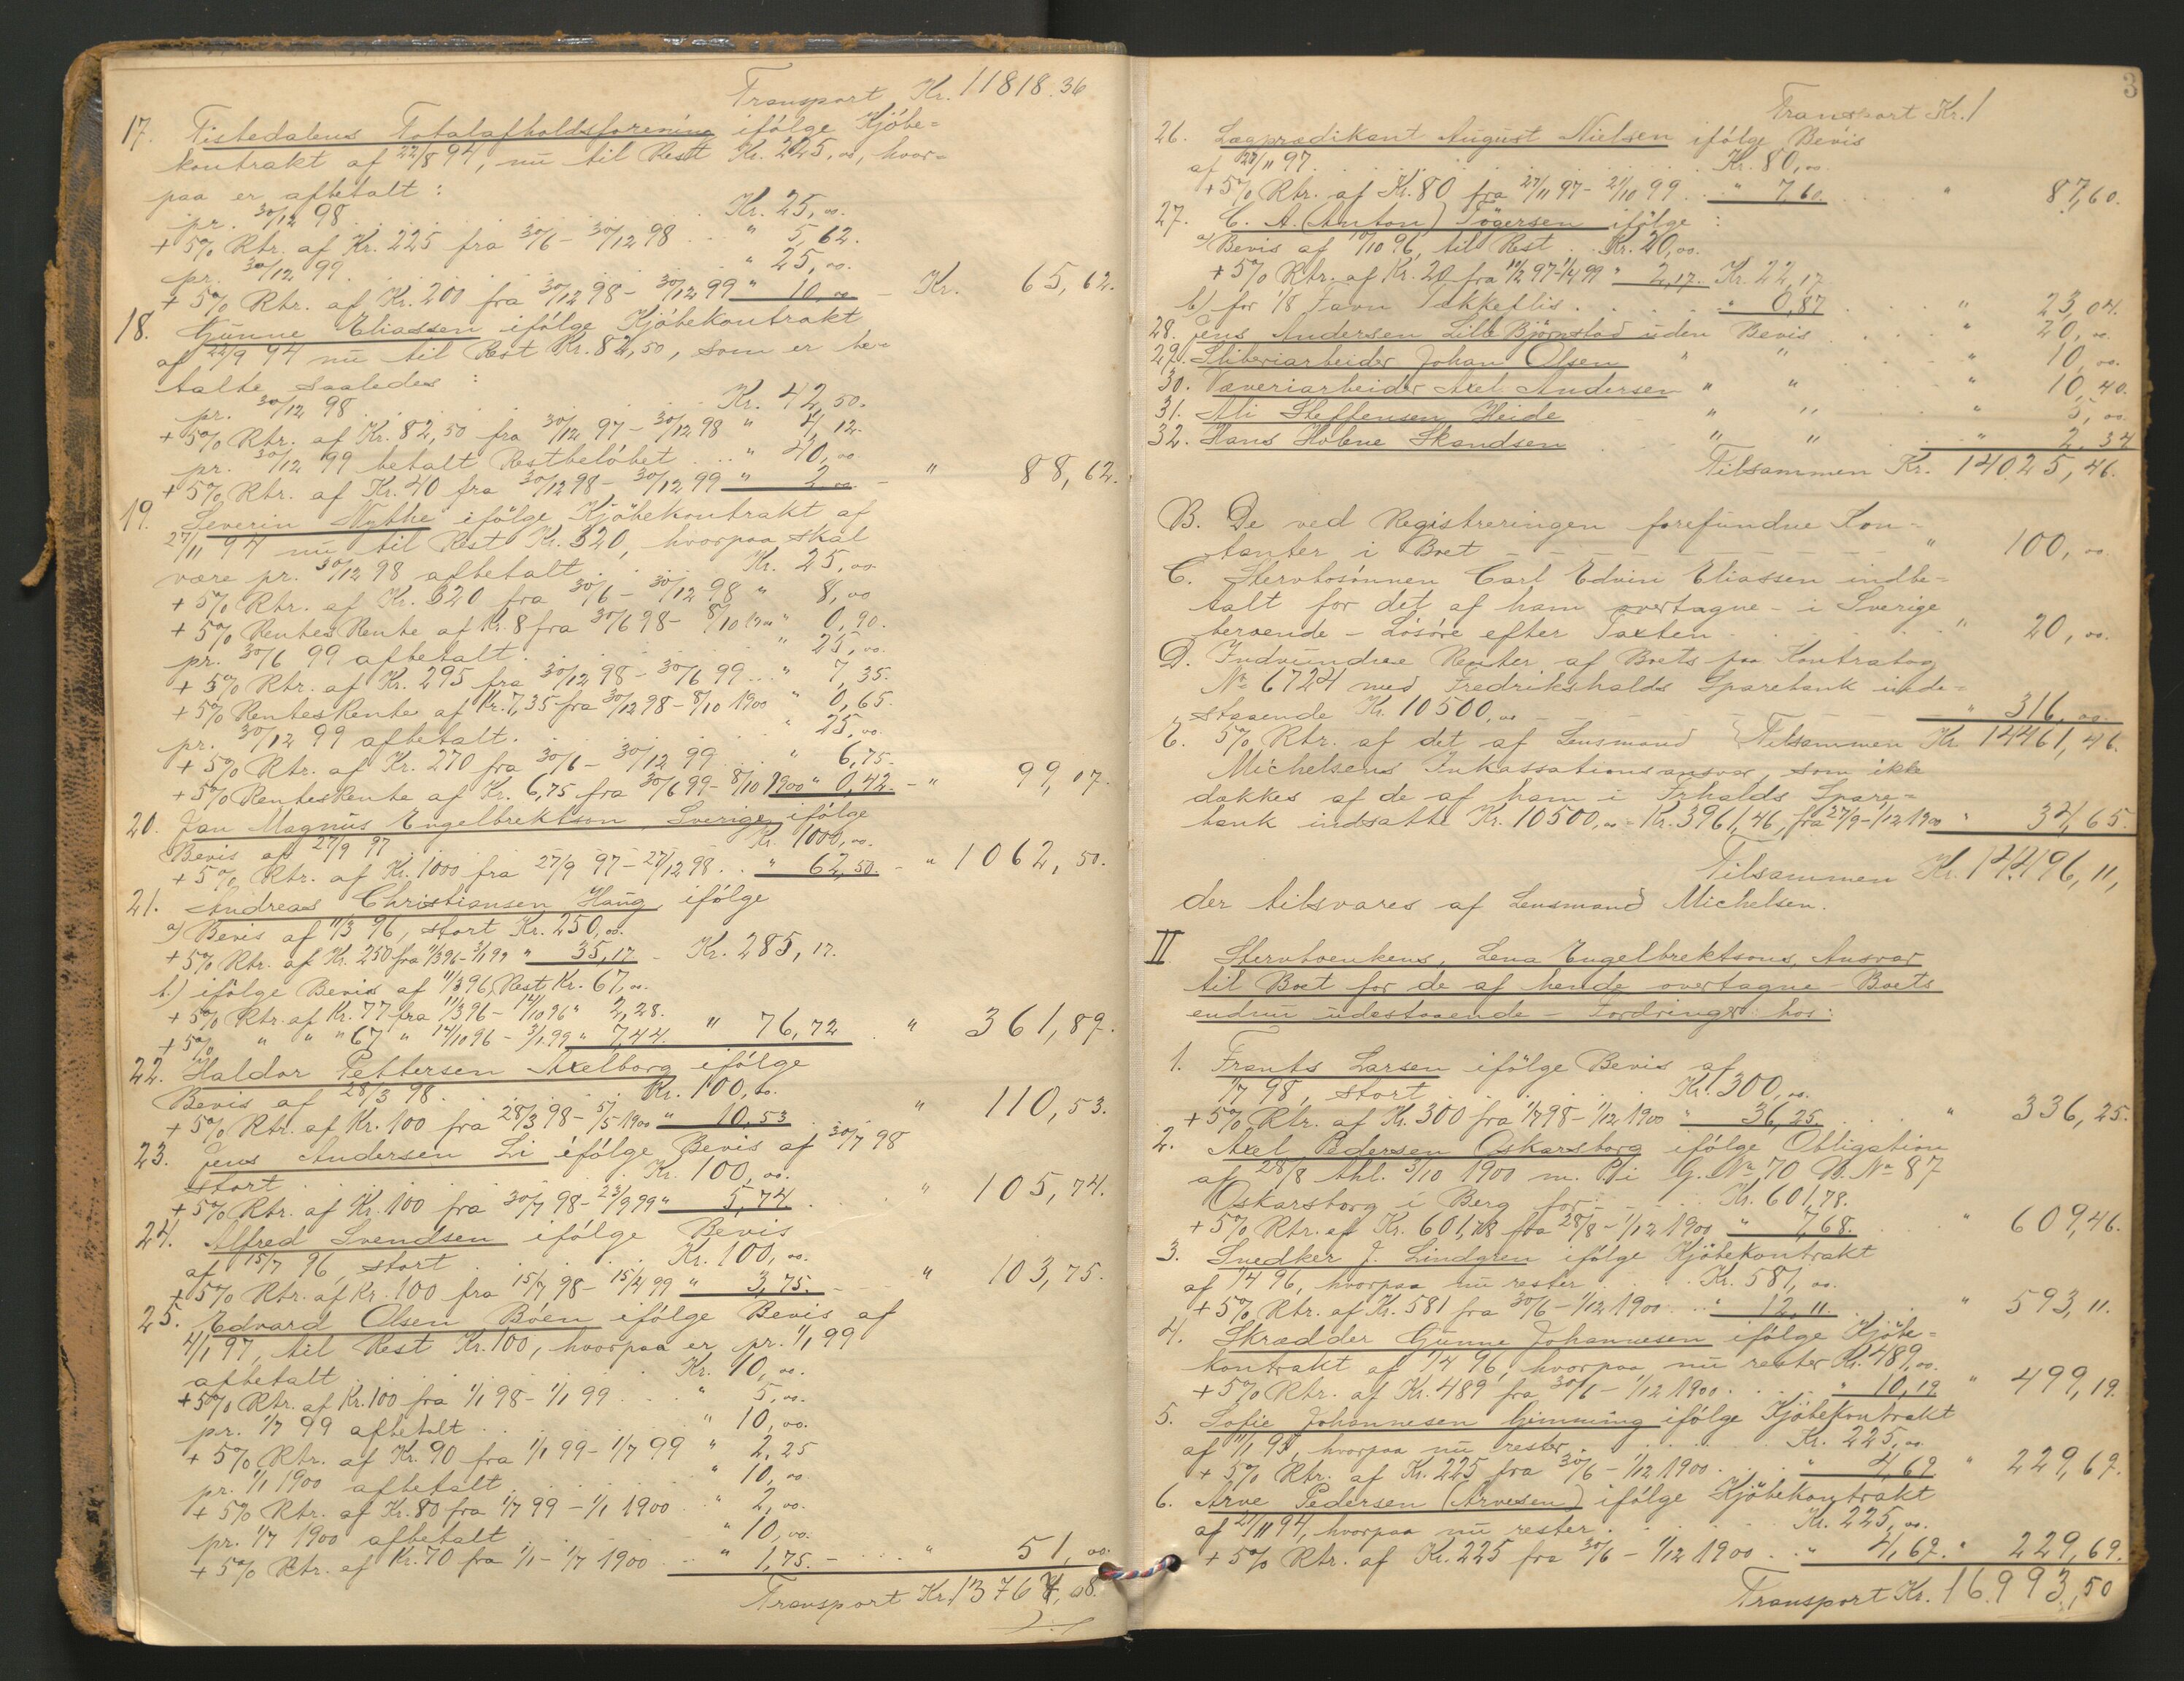 Transport Kr. 11818.36
17. Tistedalens Totalafholdsforening ifölge Kjöbe=
kontrakt af 22/8 94, nu til Rest Kr. 225,00, hvor=
paa er afbetalt:
pr. 30/12 98 . . . Kr. 25,00.
+ 5% Rtr. af Kr. 225 fra 30/6 - 30/12 98 . . " 5,62.
pr. 30/12 99. . . . " 25,00.
+ 5% Rtr. af Kr. 200 fra 30/12 98 - 30/12 99 " 10,00 - Kr. 65,62.
18. Gunne Eliassen ifölge Kjöbekontrakt
af 22/9 94 nu til Rest Kr. 82,50, som er be=
talte saaledes:
pr. 30/12 98 . . . Kr. 42,50.
+ 5% Rtr. af Kr. 82,50 fra 30/12 97 - 30/12 98 " 4,12.
pr. 30/12 99 betalt Restbelöbet . . . " 40,00
+ 5% Rtr. af Kr. 40 fra 30/12 98 - 30/12 99 " 2,00. - " 88,62.
19. Severin Nythe ifölge Kjöbekontrakt af
27/11 94 nu til Rest Kr. 320, hvorpaa skal
være pr. 30/12 98 afbetalt . . Kr. 25,00
+ 5% Rtr. af Kr. 320 fra 30/6 - 30/12 98 " 8,00
+ 5% Rentes Rente af Kr. 8 fra 30/6 98 - 8/10 1900 " 0,90.
pr. 30/6 99 afbetalt . . . " 25,00.
+ 5% Rtr. af Kr. 295 fra 30/12 98 - 30/6 99 . . " 7,35.
+ 5% Rentes Rente af Kr. 7,35 fra 30/12 98 - 8/10 1900 " 0,65.
pr. 30/12 99 afbetalt . . . " 25,00.
+ 5% Rtr. af Kr. 270 fra 30/6 - 30/12 99 . . " 6,75.
+ 5% Rentes Rente af Kr. 6,75 fra 30/6 99 - 8/10 1900 " 0,42. - " 99,07.
20. Jan Magnus Engelbrektson, Sverige, ifölge
Bevis af 27/9 97 . . . Kr. 1000,00.
+ 5% Rtr. af Kr. 1000 fra 27/9 97 - 27/12 98 . . " 62,50. " 1062,50.
21. Andreas Christiansen Haug, ifölge
a) Bevis af 11/3 96, stort Kr. 250,00.
+ 5% Rtr. af Kr. 250 fra 11/3 96 - 3/1 99 " 35,17 - Kr. 285,17.
b.) ifölge Bevis af 11/3 96, Rest Kr. 67,00.
+ 5% Rtr. af Kr. 77 fra 11/3 96 - 14/10 96 " 2,28.
+ 5% " " " 67 " 14/10 96 - 3/1 99 " 7,44. " 76,72 . " 361,89.
22. Haldor Pettersen Axelborg ifölge
Bevis af 28/3 98 . . . Kr. 100,00.
+ 5% Rtr. af Kr. 100 fra 28/3 98 - 5/5 1900 " 10,53 . . " 110,53.
23. Jens Andersen Li ifölge Bevis af 30/7 98
stort . . . Kr. 100,00.
+ 5% Rtr. af Kr. 100 fra 30/7 98 - 23/9 99 " 5,74. . . " 105,74.
24. Alfred Svendsen ifölge Bevis
af 15/7 96, stort . . . Kr. 100,00.
+ 5% Rtr. af Kr. 100 fra 15/7 98 - 15/4 99 " 3,75. - - " 103,75.
25. Edvard Olsen Böen ifölge Bevis af
4/1 97, til Rest Kr. 100, hvorpaa er pr. 1/1 99
afbetalt . . . Kr. 10,00.
+ 5% Rtr. af Kr. 100 fra 1/1 98 - 1/1 99 . . " 5,00.
pr. 1/7 99 afbetalt . . . " 10,00.
+ 5% Rtr. af Kr. 90 fra 1/1 99 - 1/7 99 " 2,25
pr. 1/1 1900 afbetalt . . . " 10,00
+ 5% Rtr. af Kr. 80 fra 1/7 99 - 1/1 1900 . . " 2,00.
pr. 1/7 1900 afbetalt . . . " 10,00.
+ 5% Rtr. af Kr. 70 fra 1/1 - 1/7 1900 . . " 1,75. - . . . " 51,00.
Transport Kr. 13767,08.
3
Transport Kr. 1
26. Lægprædikant August Nielsen ifölge Bevis
af 27/11 97 . . . Kr. 80,00.
+ 5% Rtr. af Kr. 80 fra 27/11 97 - 21/10 99 . . " 7,60. . . " 87,60.
27. C. A. (Anton) Tögersen ifölge:
a) Bevis af 10/10 96, til Rest . . Kr. 20,00.
+ 5% Rtr. af Kr. 20 fra 11/2 97 - 1/4 99 " 2,17. Kr. 22,17
b) for 1/8 Favn Pakkeflis . . . " 0,87 . . " 23,04.
28. Jens Andersen Lille Björnstad uden Bevis . . " 20,00.
29. Sliberiarbeider Johan Olsen " " . . " 10,00.
30. Væveriarbeider Axel Andersen " " . . " 10,40.
31. Ali Steffensen Heide " " . . " 5,00.
32. Hans Holene Skandsen . . " " . . " 2,34
Tilsammen Kr. 14025,46.
B. De ved Registreringen forefundne Kon=
tanter i Boet - - - - - " 100,00.
C. Stervbosönnen Carl Edvin Eliassen indbe=
talt for det af ham overtagne - i Sverige
beroende - Lösöre efter Taxten . . . " 20,00.
D. Indvundne Renter af Boets paa Kontrabog
No 6724 med Fredrikshalds Sparebank inde=
staaende Kr. 10500,00 - - - - - " 316,00.
E. 5% Rtr. af det af Lensmand } Tilsammen Kr. 14461,46.
Michelsens Inkassationsansvar, som ikke
dækkes af de af ham i Frhalds Spare=
bank indsatte Kr. 10500,00 = Kr. 3961,46, fra 27/9 - 1/12 1900 " 34,65.
Tilsammen Kr. 14496,11,
der tilsvares af Lensmand Michelsen.
II Stervboenkens, Lena Engelbrektsons, Ansvar
til Boet for de af hende overtagne - Boets
endnu udestaaende - Fordringer hos:
1. Frants Larsen ifölge Bevis af
1/7 98, stort . . . Kr. 300,00.
+ 5% Rtr. af Kr. 300 fra 1/7 98 - 1/12 1900 " 36,25. . . " 336,25.
2. Axel Pedersen Oskarsborg ifölge Obligation
af 28/8 thl. 3/10 1900 m. P. i G. No 70 B. No 87
Oskarsborg i Berg for - - . . Kr. 601,78.
+ 5% Rtr. af Kr. 601,78 fra 28/8 - 1/12 1900 " 7,68. . . " 609,46.
3. Snedker J. Lindgren ifölge Kjöbekontrakt
af 1/4 96, hvorpaa nu rester . . . Kr. 581,00.
+ 5% Rtr. af Kr. 581 fra 30/6 - 1/12 1900 . . " 12,11. . . " 593,11.
4. Skrædder Gunne Johannesen ifölge Kjöbe=
kontrakt af 1/4 96, hvorpaa nu rester Kr. 489,00.
+ 5% Rtr. af Kr. 489 fra 30/6 - 1/12 1900 . . . " 10,19 " 499,19.
5. Sofie Johannesen Gimming ifölge Kjöbekontrakt
af 11/1 95, hvorpaa nu rester . . . Kr. 225,00
+ 5% Rtr. af Kr. 225 fra 30/6 - 1/12 1900 . . . " 4,69 " 229,69.
6. Arve Pedersen (Arvesen) ifölge Kjöbekontrakt
af 27/11 94, hvorpaa nu rester . . . Kr. 225,00.
+ 5% Rtr. af Kr. 225 fra 30/6 - 1/12 1900 . . " 4,69. " 229,69.
Transport Kr. 16993,50